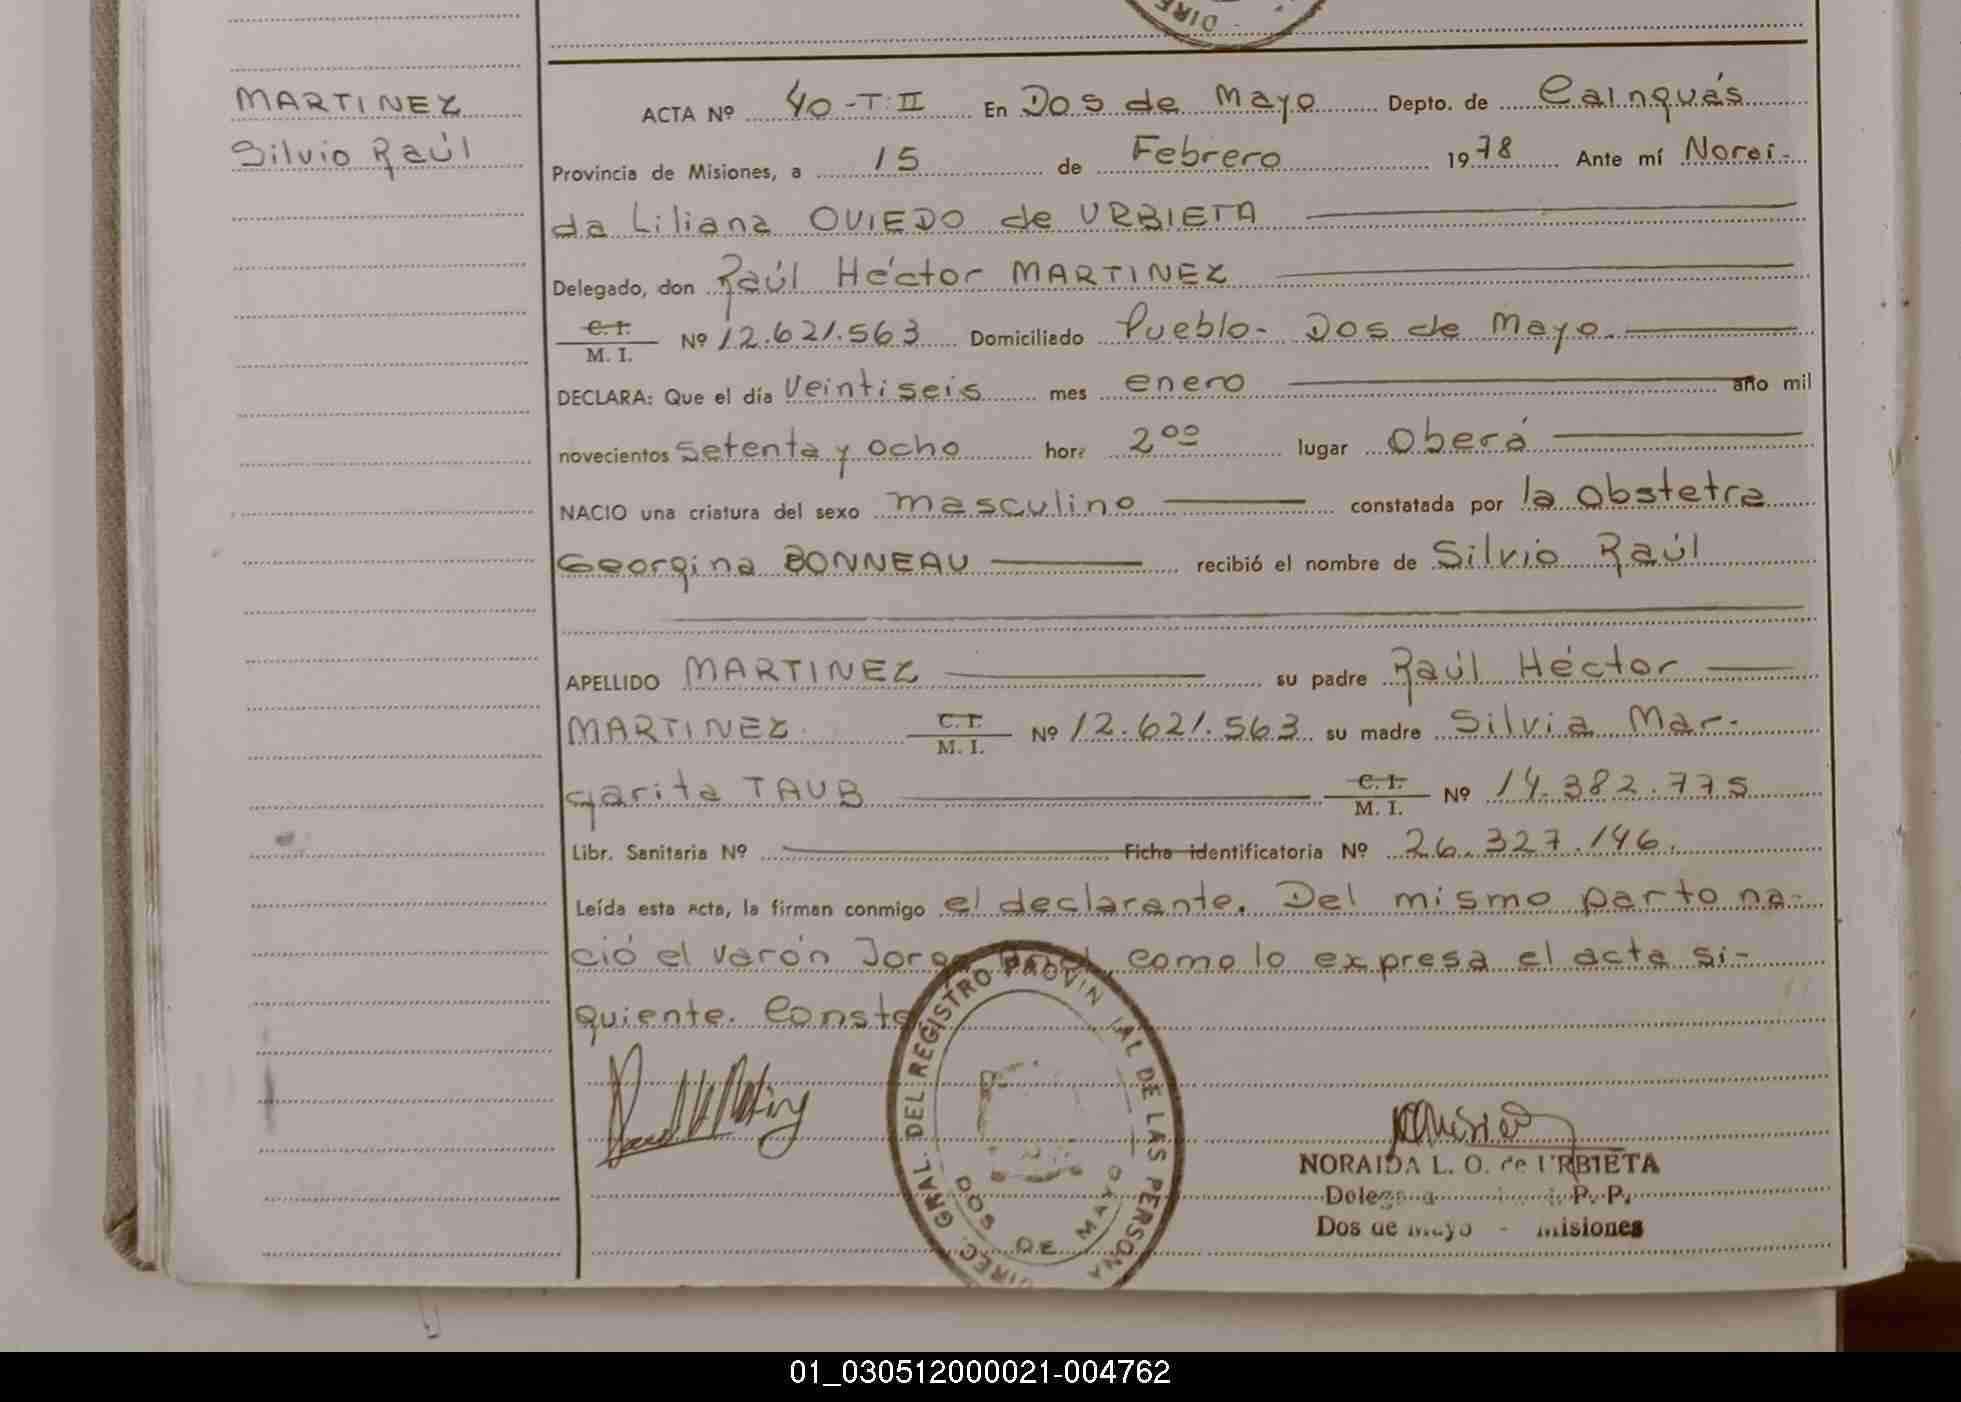 DIRE
MARTINEZ
Silvio Raúl
ACTA Nº 40-T:II En Dos de Mayo Depto. de Cainguás
Provincia de Misiones, a 15 de Febrero 1978 Ante mí Norai-
da Liliana OVIEDO de URBIETA
Delegado, don Raúl Héctor MARTINEZ
C. I. M. I. Nº 12.621.563 Domiciliado Pueblo- Dos de Mayo.
DECLARA: Que el día veintiseis mes enero año mil
novecientos setenta y ocho hora 2ºº lugar Oberá
NACIO una criatura del sexo masculino constatada por la obstetra
Georgina BONNEAU recibió el nombre de Silvio Raúl
APELLIDO MARTINEZ su padre Raúl Héctor
MARTINEZ C. I. M. I. Nº 12.621.563 su madre Silvia Mar-
garita TAUB C. I. M. I. Nº 14.382.775
Libr. Sanitaria Nº Ficha identificatoria Nº 26.327.146.
Leída esta acta, la firman conmigo el declarante. Del mismo parto na-
ció el varón Jorge como lo expresa el acta si-
guiente. Conste
DIREC. GRAL. DEL REGISTRO PROVINCIAL DE LAS PERSONAS
DOS DE MAYO
NORAIDA L. O. de URBIETA
R. P. P.
Dos de Mayo - Misiones
01_030512000021-004762